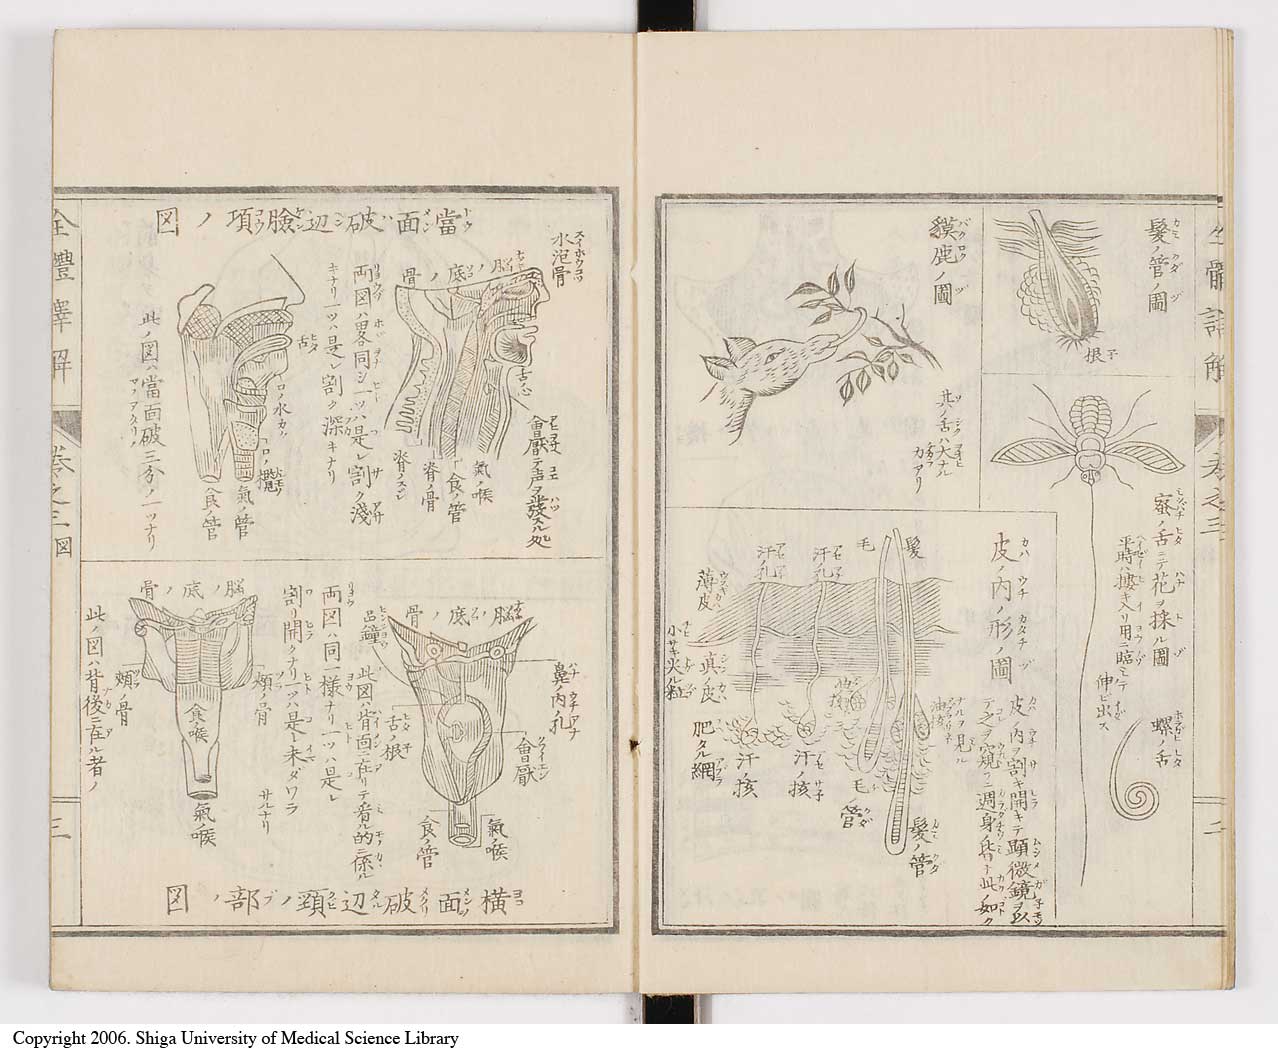 髮ノ管ノ圖
根
蜜ノ舌ニテ花ヲ採ル圖
螺ノ舌
獏鹿ノ圖
其ノ舌ハ大ナル
皮ノ内ノ形ノ圖
皮ノ内ヲ割キ開キテ顕微鏡ヲ以
テ之ヲ窺フニ週身ノ
此ノ如ク
ナルヲ見ル
髮
毛
汗ノ孔
汗ノ孔
薄皮
真ノ皮
肥タル網
汗ノ核
汗ノ核
毛ノ管
髮ノ管
二
當面破辺臉項ノ図
水泡骨
脳ノ底ノ骨
舌心
會厭テ声ヲ發スル処
氣ノ喉
食ノ管
脊ノ骨
両図ハ畧同シ一ツハ是レ割ク淺
キナリ一ツハ是レ割ク深キナリ
舌
氣ノ管
食ノ管
此ノ図ハ當面破三分ノ一ツナリ
脳ノ底ノ骨
鼻ノ内孔
會厭
舌根
氣ノ喉
食ノ管
此図ハ背面ニ在リテ看ル的ニ係ル
両図ハ同一様ナリ一ツハ是レ
割リ開クナリ一ツハ是レ未ダワラ
サルナリ
脳ノ底ノ骨
頬ノ骨
頬ノ骨
食ノ喉
氣ノ喉
此ノ図ハ背後ニ在ル者ノ
横面破辺頸ノ部ノ図
全體譯解
巻之三図
三
Copyright 2006. Shiga University of Medical Science Library